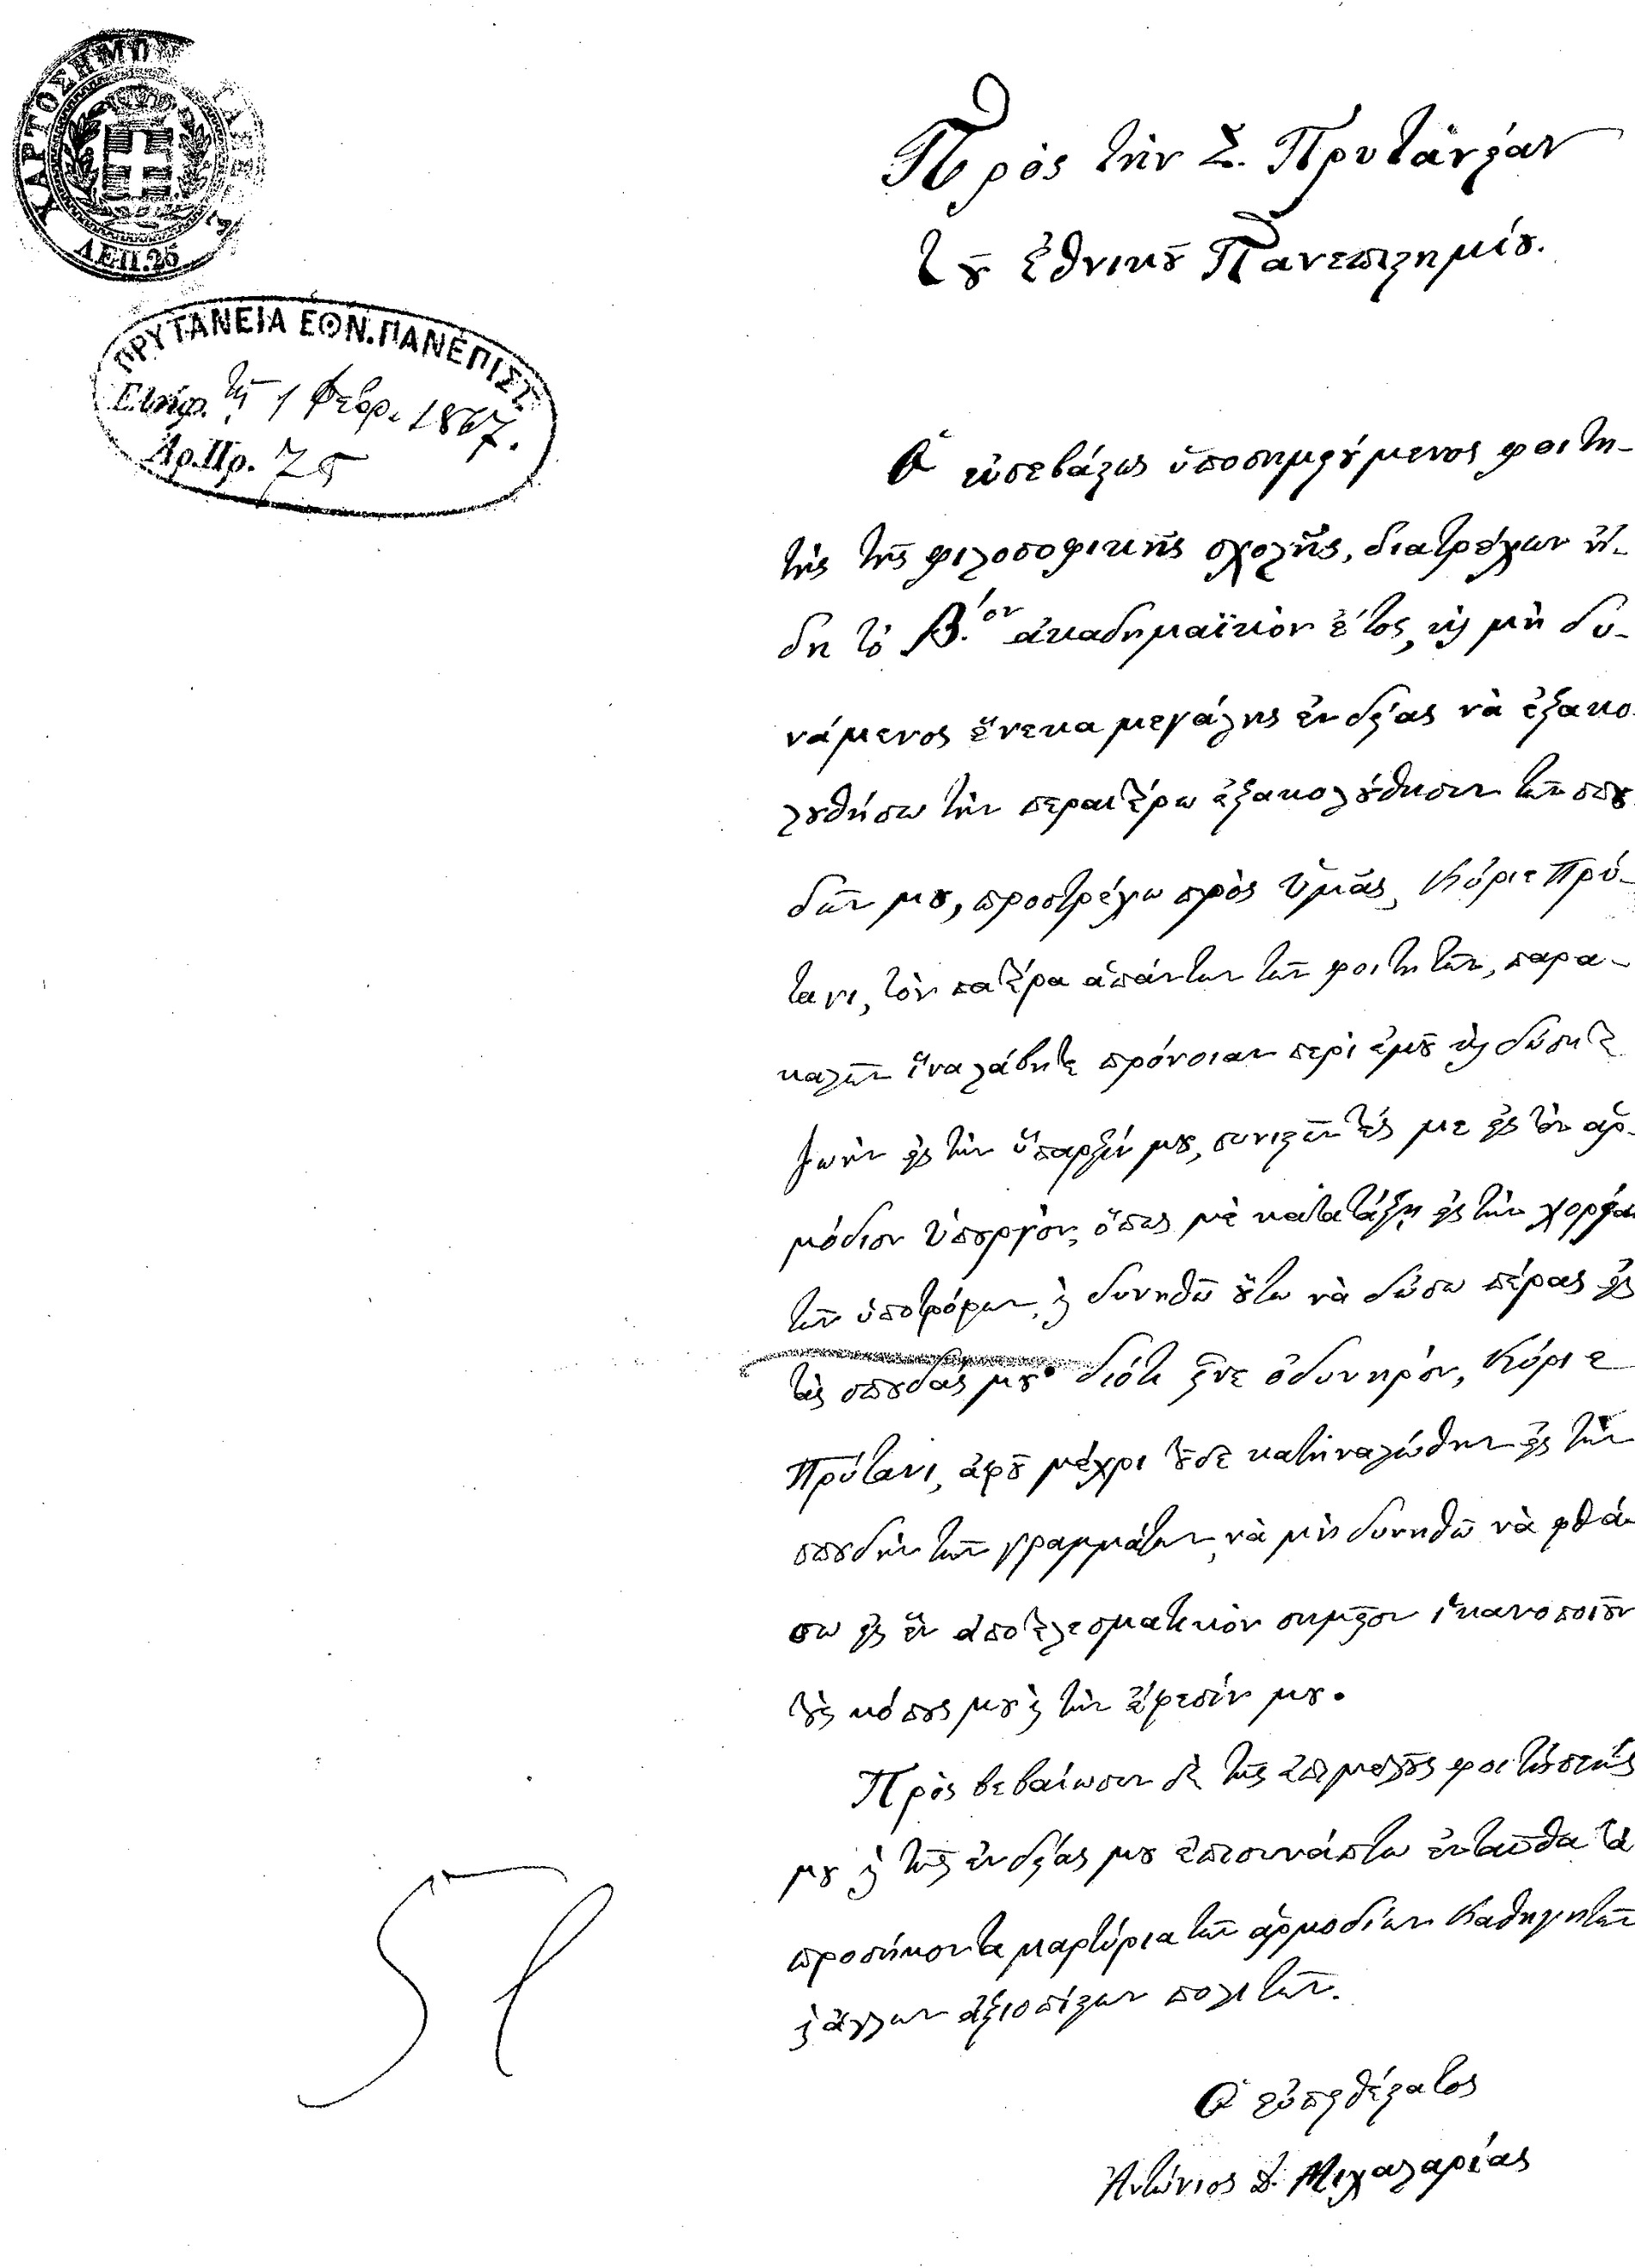 ΧΑΡΤΟΣΗΜΟΝ
ΛΕΠ.25
ΠΡΥΤΑΝΕΙΑ ΕΘΝ.ΠΑΝΕΠΙΣΤ.
Ελήφ. τῇ 1 Φεβρ. 1867.
Ἀρ.Πρ.
Πρὸς τὴν Σ. Πρυτανείαν
τοῦ Ἐθνικοῦ Πανεπιστημίου.
Ὁ εὐσεβάστως ὑποσημειούμενος φοιτη-
τὴς τῆς φιλοσοφικῆς σχολῆς, διατρέχων ἤ-
δη τὸ Β.ον ἀκαδημαϊκὸν ἔτος, καὶ μὴ δυ-
νάμενος ἕνεκα μεγάλης ἐνδείας νὰ ἐξακο
λουθήσω τὴν περαιτέρω ἐξακολούθησιν τῶν σπου
δῶν μου, προστρέχω πρὸς Ὑμᾶς, Κύριε Πρύ-
τανι, τὸν πατέρα ἁπάντων τῶν φοιτητῶν, παρα-
καλῶν ἵνα λάβητε πρόνοιαν περὶ ἐμοῦ καὶ δώσητε
ζωὴν εἰς τὴν ὕπαρξίν μου, συνιστῶντές με εἰς τὸν ἁρ-
μόδιον Ὑπουργόν, ὅπως μὲ κατατάξῃ εἰς τὴν χορείαν
τῶν ὑποτρόφων, καὶ δυνηθῶ οὕτω νὰ δώσω πέρας εἰς
τὰς σπουδάς μου· διότι εἶνε ὀδυνηρόν, Κύριε
Πρύτανι, ἀφοῦ μέχρι τοῦδε κατηναλώθην εἰς τὴν
σπουδὴν τῶν γραμμάτων, νὰ μὴ δυνηθῶ νὰ φθά-
σω εἰς ἓν ἀποτελεσματικὸν σημεῖον ἱκανοποιοῦν
τοὺς κόπους μου καὶ τὴν ἔφεσίν μου.
Πρὸς βεβαίωσιν δὲ τῆς ἐπιμελοῦς φοιτήσεώς
μου καὶ τῆς ἐνδείας μου ἐπισυνάπτω ἐνταῦθα τὰ
προσήκοντα μαρτύρια τῶν ἁρμοδίων Καθηγητῶν
καὶ ἄλλων ἀξιοπίστων πολιτῶν.
Ὁ εὐπειθέστατος
Ἀντώνιος Δ. Μιχαλαρίας